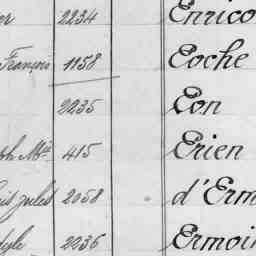 2234 Enrico
François 1158 Eoche
2235 Eon
ph Mie 415 Erien
uis jules 2058 d'Erm
2236 Ermoi